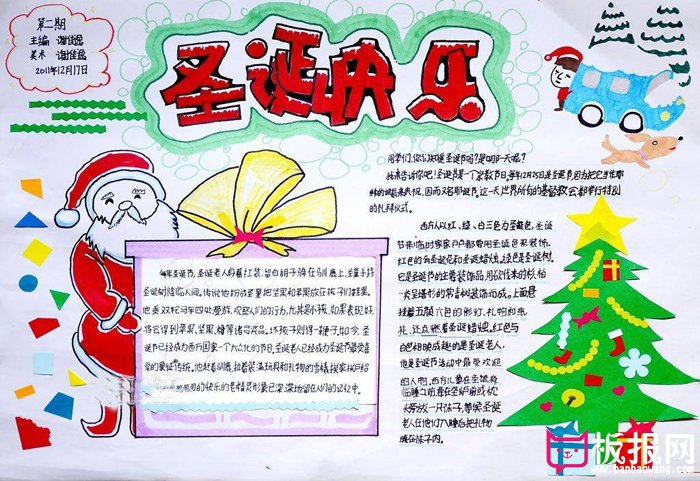 第二期
主编 谢佳逸
美术 谢佳逸
2011年12月17日
圣诞快乐
同学们,你们知道圣诞节吗?是哪一天呢?
我来告诉你吧!圣诞节是一个宗教节日。每年12月25日是圣诞节因为把它当作耶
稣的诞辰来庆祝,因而又名耶诞节。这一天世界所有的基督教会都举行特别
的礼拜仪式。
西方人以红、绿、白三色为圣诞色,圣诞
节来临时家家户户都要用圣诞色来装饰。
红色的有圣诞花和圣诞蜡烛。绿色是圣诞树。
它是圣诞节的主要装饰品,用砍伐来的杉、柏
一类呈塔形的常青树装饰而成。上面悬
挂着五颜六色的彩灯、礼物和纸
花,还点燃着圣诞蜡烛。红色与
白色相映成趣的是圣诞老人,
他是圣诞节活动中最受欢迎
的人物。西方儿童在圣诞夜
临睡之前,要在壁炉前或枕
头旁放一只袜子,等候圣诞
老人在他们入睡后把礼物
放在袜子内。
每年圣诞节,圣诞老人骑着红装、留白胡子骑在驯鹿上,圣童手持
圣诞树降临人间。
他要观察人们的行为,尤其是小孩,如果表现好,
将会得到苹果、坚果、糖等诸多奖品。坏孩子则得一鞭子,如今,圣
诞节已经成为西方国家一个大众化的节日,圣诞老人已经成为圣诞节最受喜
爱的象征、传统。他赶着驯鹿,拉着装满玩具和礼物的雪橇挨家挨户给
的快乐的老精灵形象已深深地留在人们的记忆中。
板报网
www.banbaowang.com